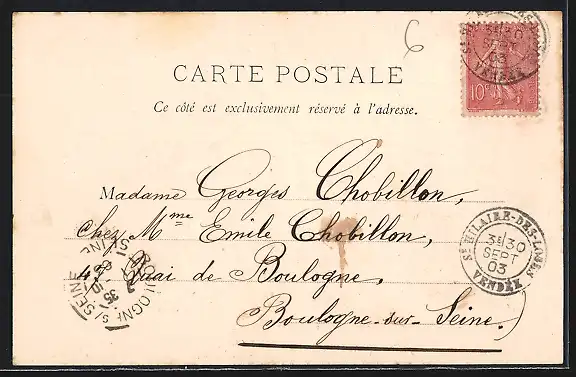 6
10c
CARTE POSTALE
Ce côté est exclusivement réservé à l'adresse.
Madame Georges Chobillon,
chez Mme Emile Chobillon,
47 Quai de Boulogne,
Boulogne-sur-Seine.
St HILAIRE-DES-LOGES
3E 30
SEPT
03
VENDÉE